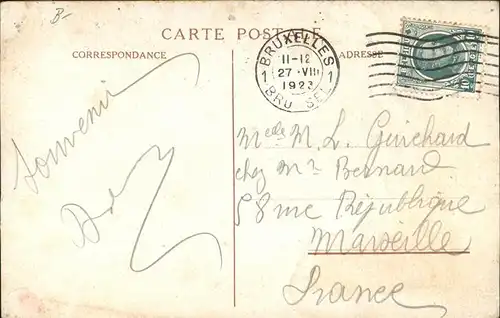 B-
CARTE POSTALE
CORRESPONDANCE
ADRESSE
BRUXELLES
11-12
1 27 VIII 1
1923
BRUSSEL
Souvenir
M L. Guichard
chez Mr Bernard
58 rue République
Marseille
France